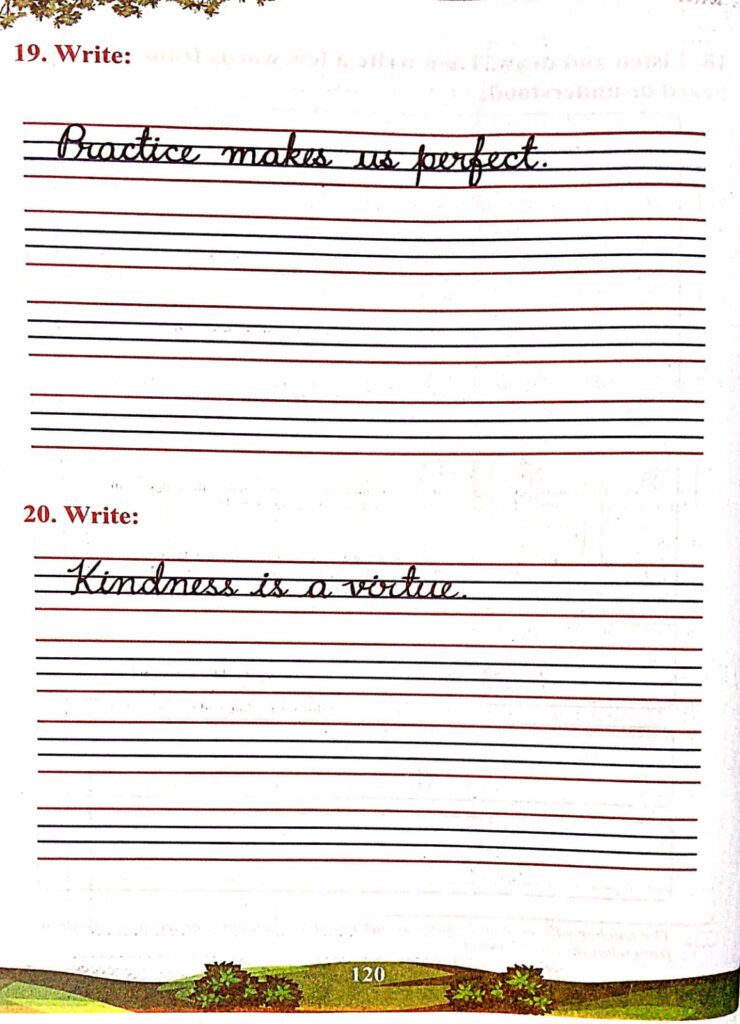 19. Write:
Practice makes us perfect.
20. Write:
Kindness is a virtue.
120